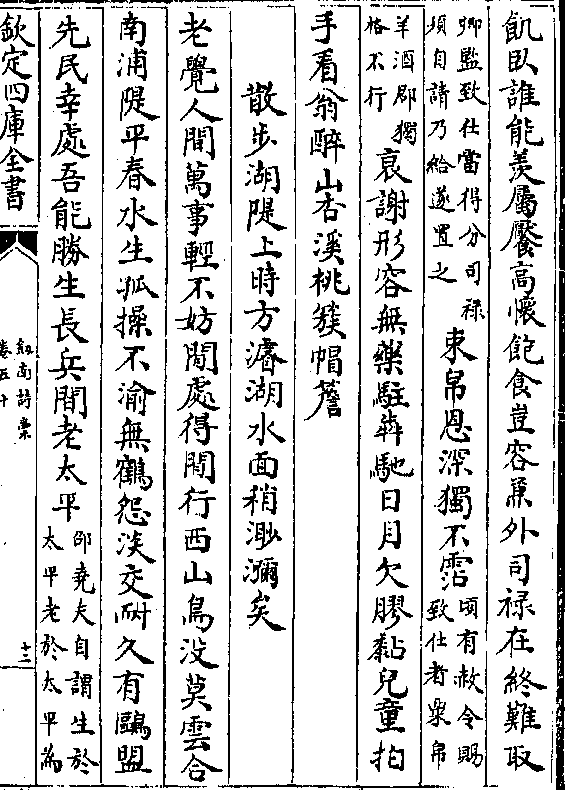 飢臥誰能羨屬饜高懷飽食豈容兼外司祿在終難取
卿監致仕當得分司祿
須自請乃給遂置之
束帛恩深獨不霑
頃有赦令賜
致仕者粟帛
羊酒郡獨
格不行
衰謝形容無藥駐犇馳日月欠膠黏兒童拍
手看翁醉山杏溪桃簇帽簷
散步湖隄上時方濬湖水面稍渺瀰矣
老覺人間萬事輕不妨閒處得閒行西山鳥没莫雲合
南浦隄平春水生孤操不渝無鶴怨淡交耐久有鷗盟
先民幸處吾能勝生長兵間老太平
邵堯夫自謂生於
太平老於太平為
欽定四庫全書
劍南詩稾
卷五十
十二